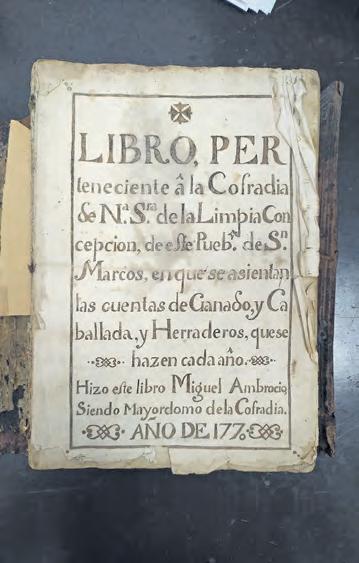 LIBRO, PER
teneciente â la Cofradia
de N.ª S.ra de la Limpia Con
cepcion, de este Pueb.º de S.n
Marcos, en que se asientan
las cuentas de Ganado, y Ca
ballada, y Herraderos, que se
hazen cada año.
Hizo este libro Miguel Ambrocio,
Siendo Mayordomo de la Cofradia.
AÑO DE 177